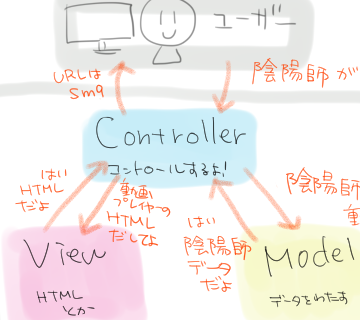 ユーザー
URLは
sm9
陰陽師が
Controller
コントロールするよ!
はい
HTML
だよ
動画
プレイヤーの
HTML
だしてよ
はい
陰陽師
データ
だよ
陰陽師
View
HTML
とか
Model
データをわたす